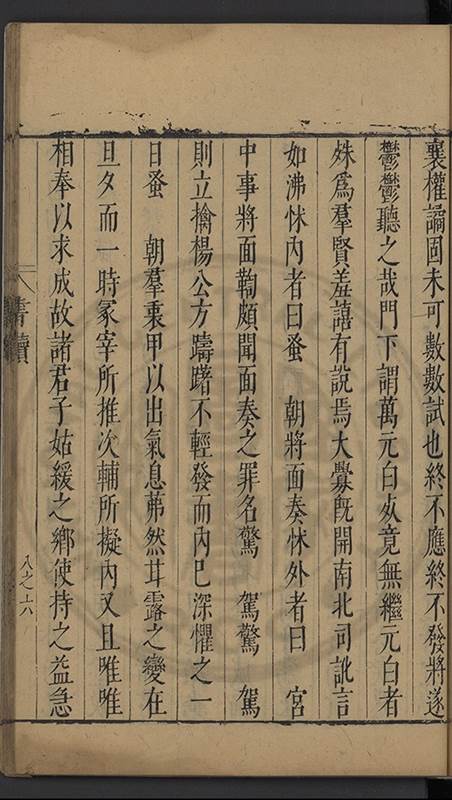 襄權譎固未可數數試也終不應終不發將遂
鬱鬱聽之哉門下謂萬元白死竟無繼元白者
殊爲羣賢羞諱有說焉大釁旣開南北司訛言
如沸怵內者曰蚤　朝將面奏怵外者曰　宮
中事將面鞫頗聞面奏之罪名驚　駕驚　駕
則立擒楊公方躊躇不輕發而內已深懼之一
日蚤　朝羣裹甲以出氣息茀然甘露之變在
旦夕而一時冢宰所推次輔所擬內又且唯唯
相奉以求成故諸君子姑緩之鄉使持之益急
書牘
八之六